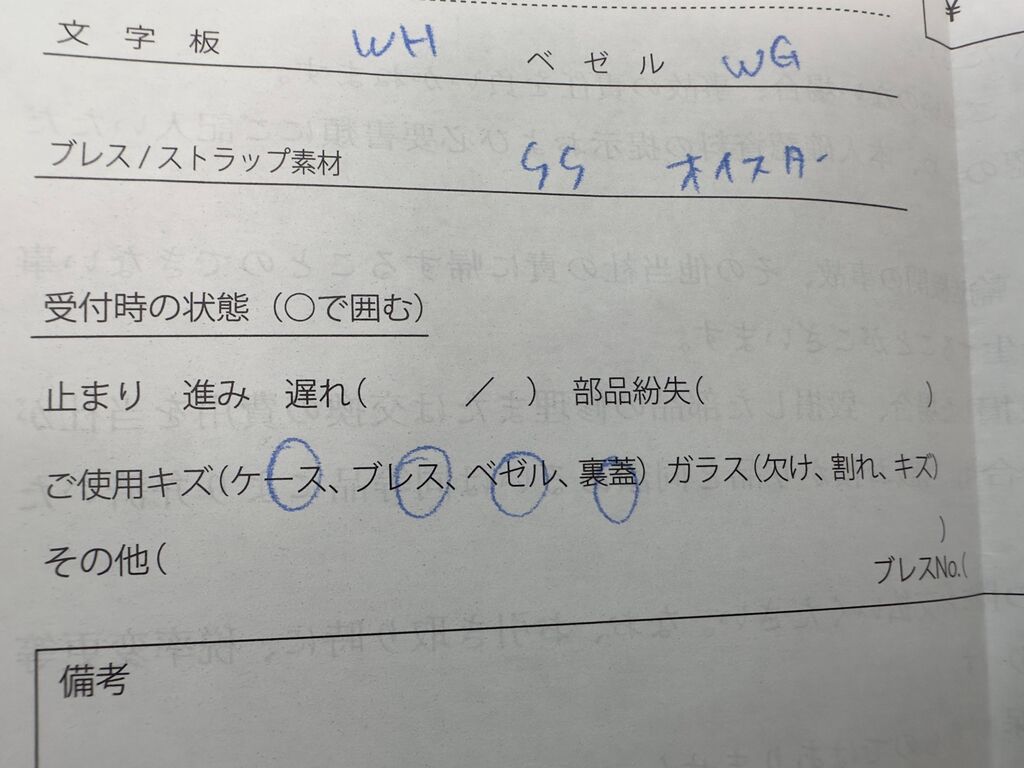 ¥
文字板 WH ベゼル WG
ブレス/ストラップ素材 SS オイスター
受付時の状態（○で囲む）
止まり 進み 遅れ( ／ ) 部品紛失( )
ご使用キズ(ケース、ブレス、ベゼル、裏蓋) ガラス(欠け、割れ、キズ)
その他( )
ブレスNo.(
備考